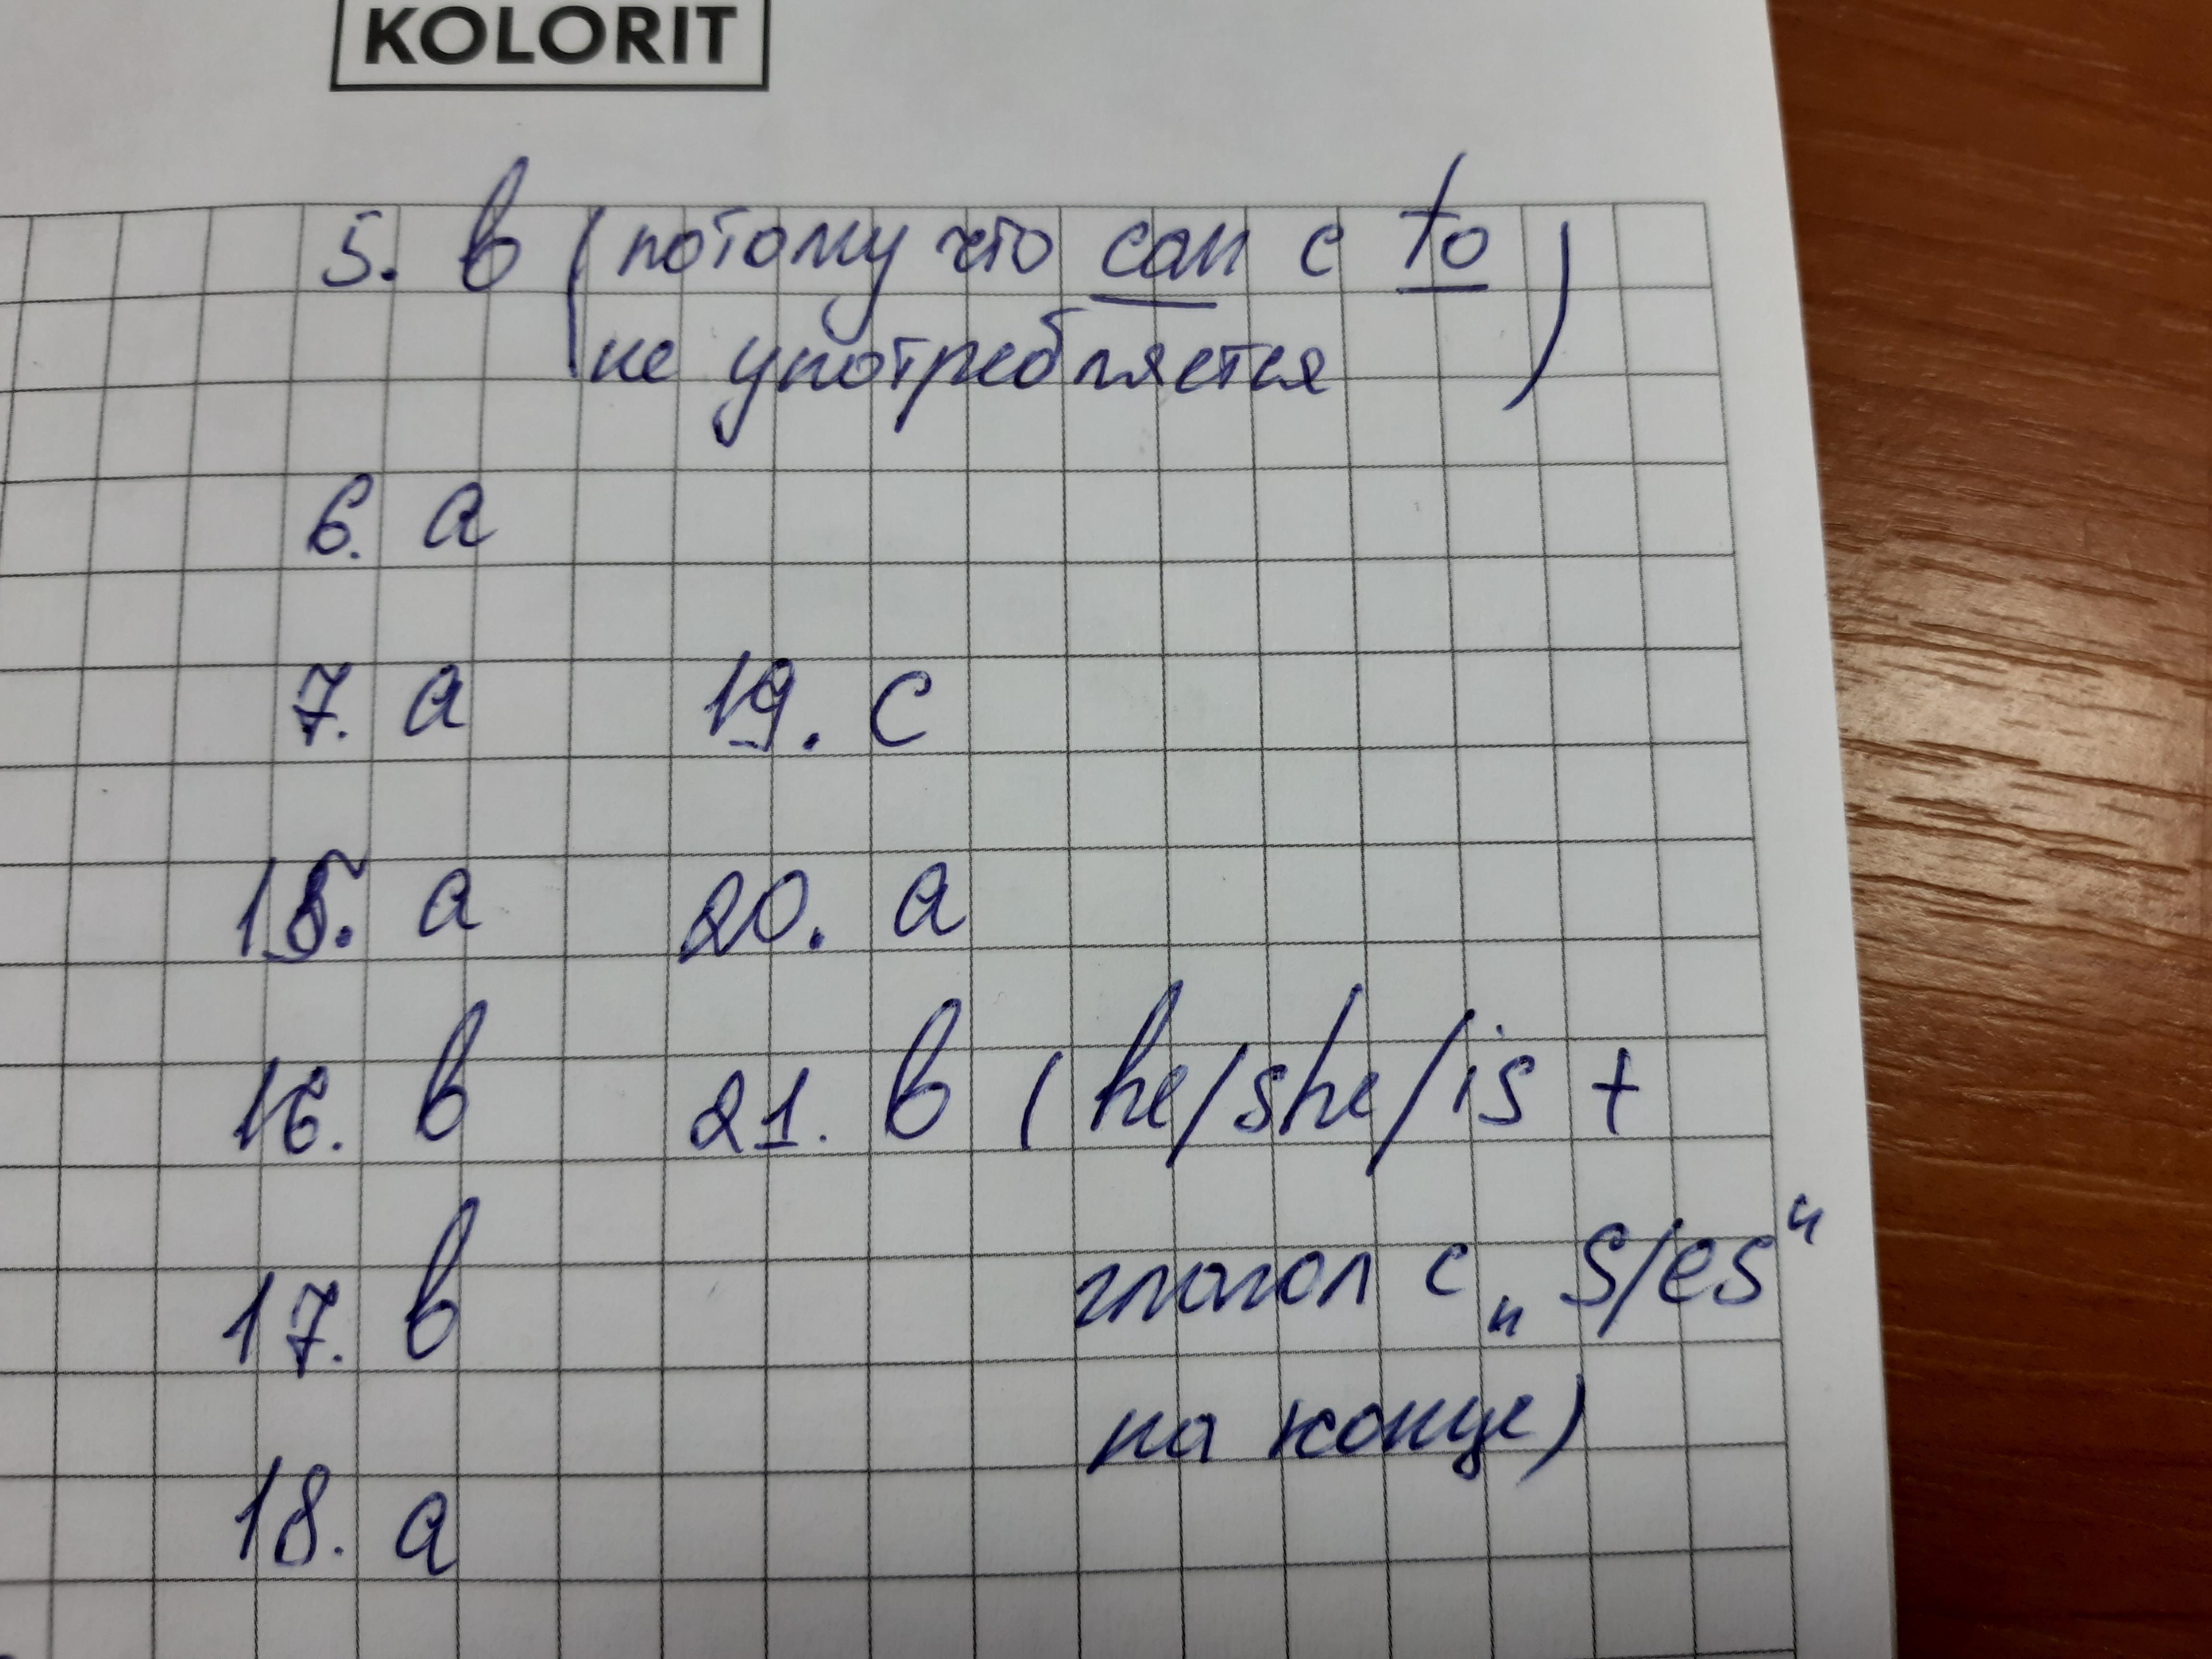 KOLORIT
5. в (потому что can с to
не употребляется)
6. а
7. а
19. с
15. а
20. а
16. в
21. в (he/she/is +
глагол с „s/es“
на конце)
17. в
18. а